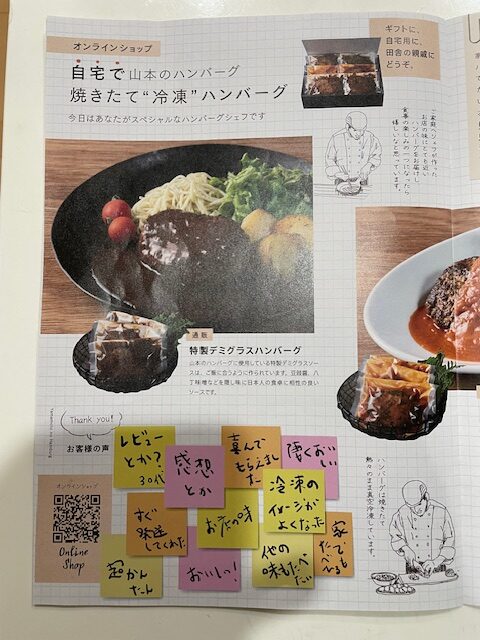 オンラインショップ
自宅で山本のハンバーグ
焼きたて“冷凍”ハンバーグ
今日はあなたがスペシャルなハンバーグシェフです
ギフトに、
自宅用に、
田舎の親戚に
どうぞ。
ご家庭でシェフが作った
お店の味にとても近い
ハンバーグをお届けし
食事の楽しみの一つになったら
嬉しいなと思っています。
通販
特製デミグラスハンバーグ
山本のハンバーグに使用している特製デミグラスソー
スは、ご飯に合うように作られています。豆豉醤、八
丁味噌などを隠し味に日本人の食卓に相性の良い
ソースです。
Yamamoto no Hamburg
Thank you!
お客様の声
レビュー
とか？
30代
感想
とか
喜んで
もらえまし
た
凄くおい
しい
すぐ
発送
してくれた
お店の味
冷凍の
イメージが
よくなった
超かん
たん
おいしい！
他の
味もたべ
たい
家
でも
たべ
れる
オンラインショップ
Online
Shop
ハンバーグは焼きたて
熱々のまま真空冷凍しています。